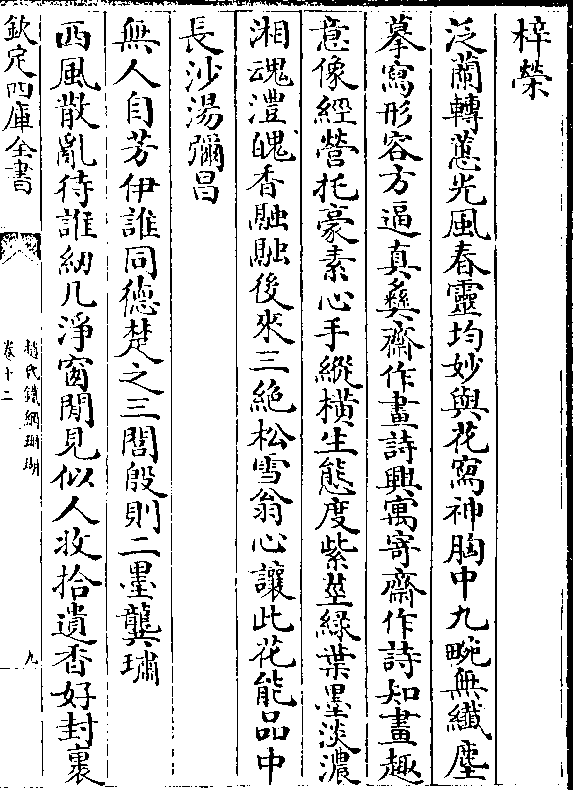 梓榮
泛蘭轉蕙光風春靈均妙與花寫神胸中九畹無纖塵
摹寫形容方逼真彝齋作畫詩興寓寄齋作詩知畫趣
意像經營托豪素心手縱橫生態度紫莖緑葉墨淡濃
湘魂澧魄香融融後來三絶松雪翁心讓此花能品中
長沙湯彌昌
無人自芳伊誰同德楚之三閭殷則二墨龔璛
西風散亂待誰紉几淨窗閒見似人收拾遺香好封裹
欽定四庫全書
趙氏鐵網珊瑚
卷十二
九